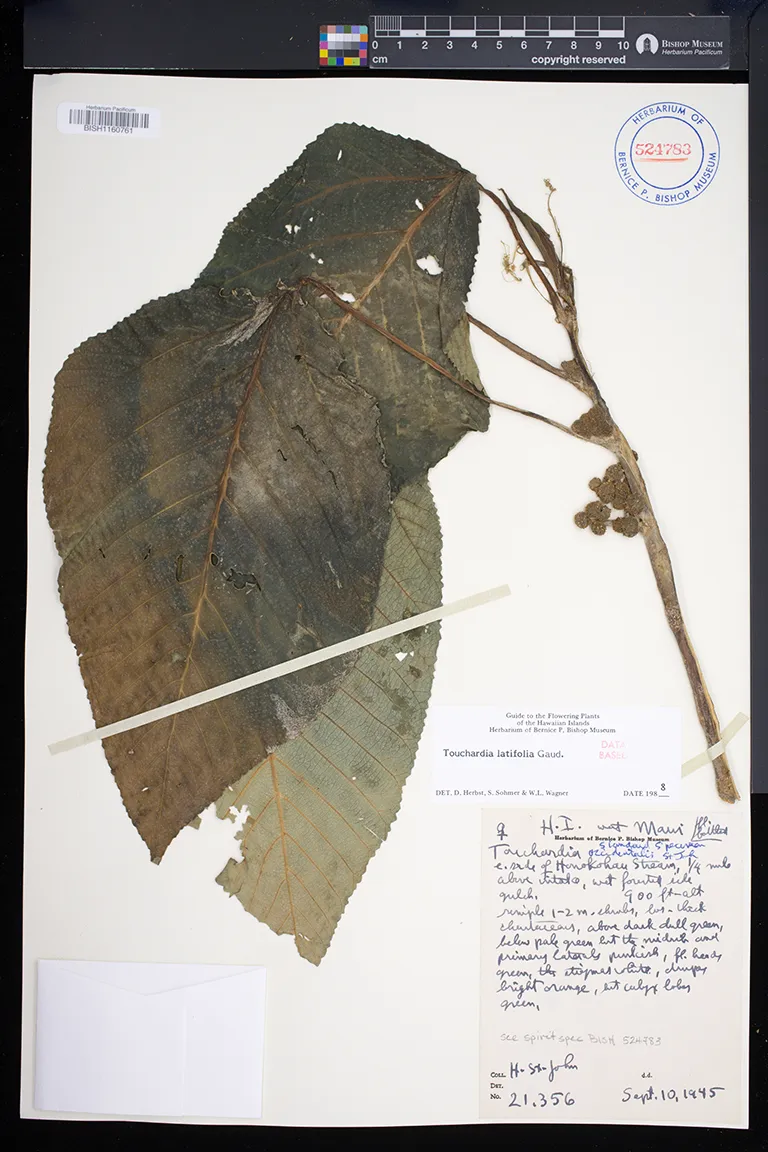 0 1 2 3 4 5 6 7 8 9 10
cm
copyright reserved
BISHOP MUSEUM
Herbarium Pacificum
Herbarium Pacificum
BISH1160761
HERBARIUM OF
524783
BERNICE P. BISHOP MUSEUM
Guide to the Flowering Plants
of the Hawaiian Islands
Herbarium of Bernice P. Bishop Museum
DATA
Touchardia latifolia Gaud.
DET. D. Herbst, S. Sohmer & W.L. Wagner DATE 1988
H.I. west Maui
Herbarium of Bernice P. Bishop Museum
standard specimen
Touchardia occidentalis St. John
e. side of Honokohau Stream, 1/4 mile
above intake, wet forested side
gulch. 900 ft. alt
simple 1-2 m. shrubs, lvs. thick
chartaceous, above dark dull green,
below pale green but the midrib and
primary laterals purkish, fl. heads
green, the stigmas white, drupes
bright orange, but calyx lobes
green,
see spirit spec BISH 524783
COLL. H. St. John d.d.
DET.
No. 21,356 Sept. 10, 1945